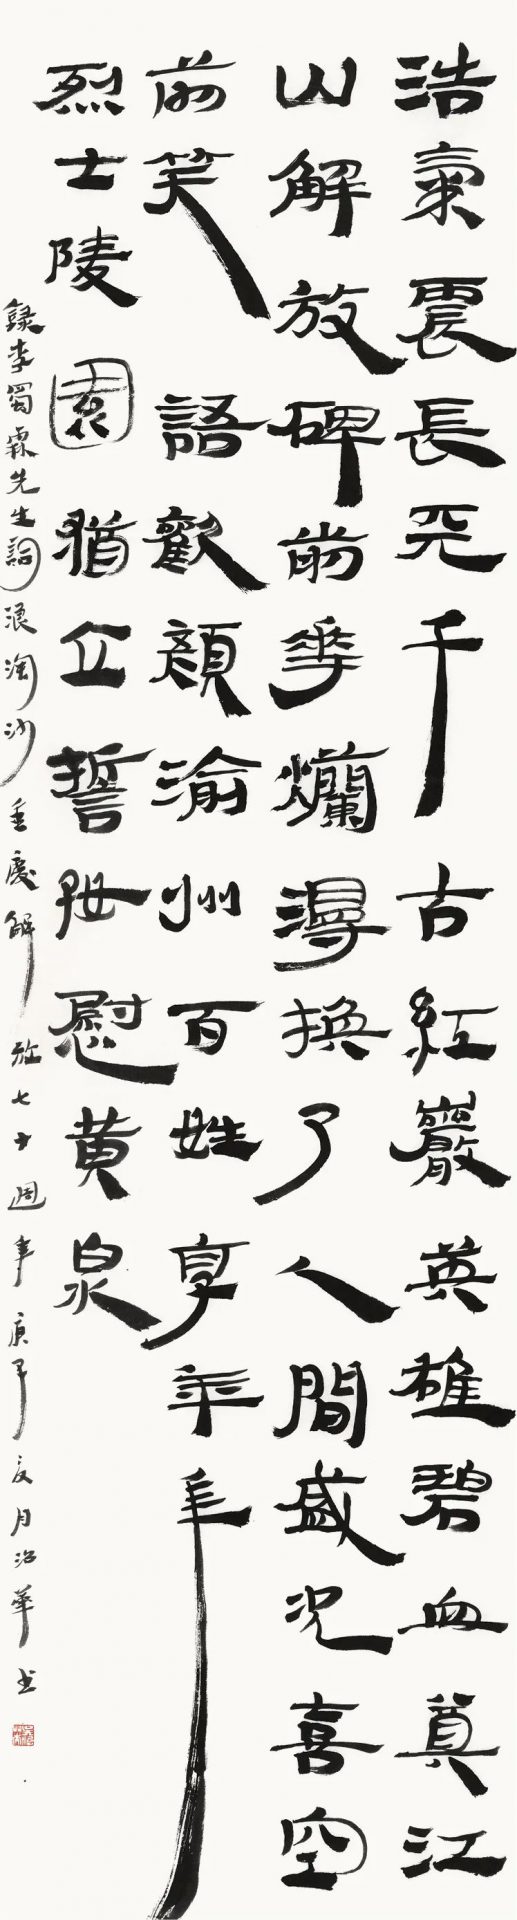 浩氣震長天千古紅巖英雄碧血奠江
山解放碑前華爛漫換了人間盛況喜空
前笑語歡顏渝州百姓享平年
烈士陵園猶立誓慰黃泉
錄李蜀霖先生詞浪淘沙重慶解放七十週年庚子夏月華書